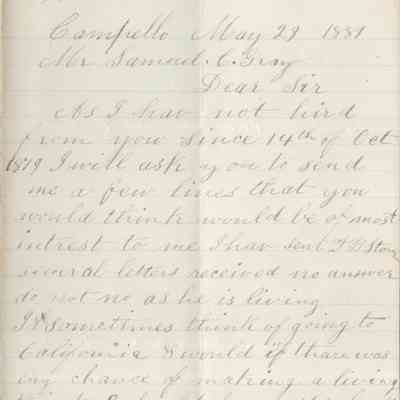 Campello May 29 1881
Mr Samuel. C. Gray
Dear Sir
As I hav not hird
from you since 14th of Oct
1879 I will ask you to send
me a few lines that you
would think would be of most
intrest to me I hav sent
several letters received no answer
do not no as he is living
I sometimes think of going to
California & would if thare was
any chance of making a living